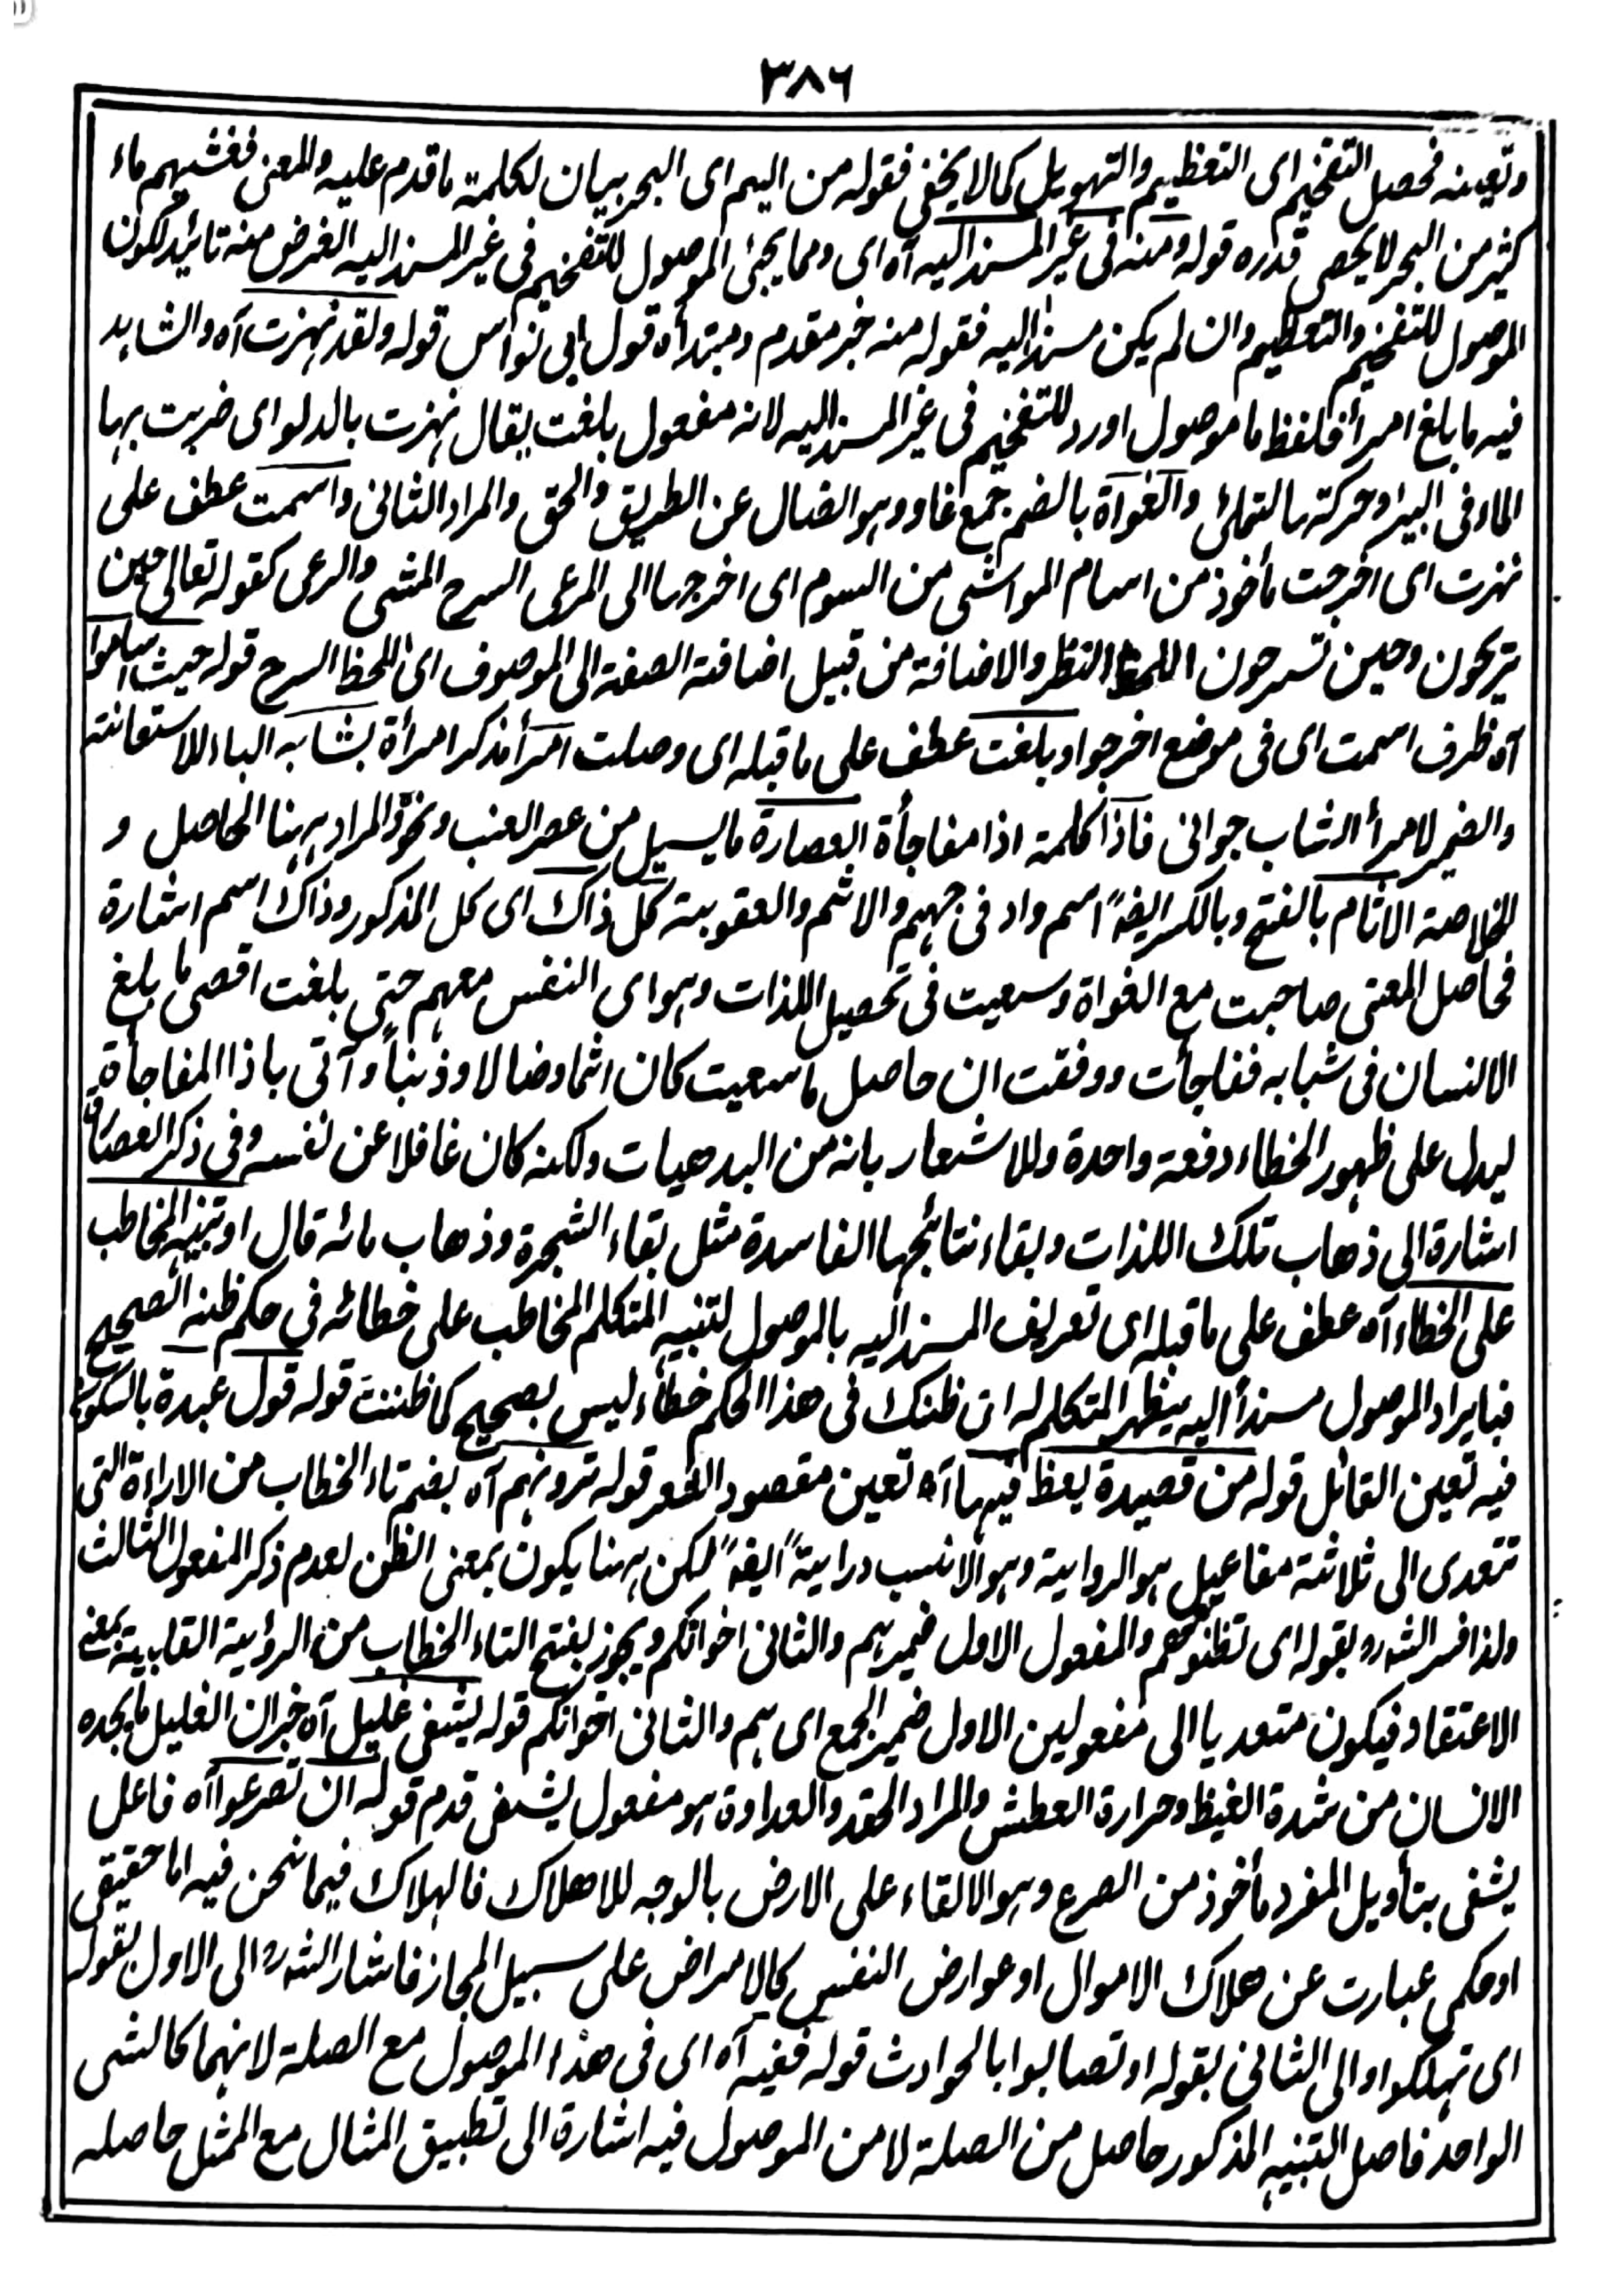 ٣٨٦
وتعينه فحصل التفخيم اى التعظيم والتهويل كما لا يخفى فقوله من اليم اى البحر بيان لكلمة ما قدم عليه والمعنى فغشيهم ماء
كثير من البحر لا يحصى قدره قوله ومنه فى غير المسند اليه آه اى ومما يجئ الموصول للتفخيم فى غير المسند اليه الغرض منه تائيد لكون
الموصول للتفخيم والتعظيم وان لم يكن مسندا اليه فقوله منه خبر مقدم ومبتدأه قول ابى نواس قوله ولقد نهزت آه والشاهد
فيه ما بلغ امرأ فلفظ ما موصول اورد للتفخيم فى غير المسند اليه لانه مفعول بلغت يقال نهزت بالدلو اى ضربت بها
الماء فى البئر وحركتها لتمتلئ والغواة بالضم جمع غاو وهو الضال عن الطريق والحق والمراد الثانى واسمت عطف على
نهزت اى اخرجت مأخوذ من اسام المواشى من السوم اى اخرجها الى المرعى السرح المشى والرعى كقوله تعالى حين
تريحون وحين تسرحون اللحظ النظر والاضافة من قبيل اضافة الصفة الى الموصوف اى اللحظ السرح قوله حيث اساموا
آه ظرف اسمت اى فى موضع اخرجوا وبلغت عطف على ما قبله اى وصلت امرأ مذكر امرأة بشبابه الباء للاستعانة
والضمير لامرأ الشاب جوانى فاذا كلمة اذا مفاجأة العصارة ما يسيل من عصر العنب ونحوه المراد ههنا الحاصل و
الخلاصة الاثام بالفتح وبالكسر ايضاً اسم واد فى جهنم والاثم والعقوبة كل ذاك اى كل المذكور وذاك اسم اشارة
فحاصل المعنى صاحبت مع الغواة وسعيت فى تحصيل اللذات وهواى النفس معهم حتى بلغت اقصى ما بلغ
الانسان فى شبابه ففاجأت ووفقت ان حاصل ما سعيت كان اثما وضالا وذنباً وآتى باذا المفاجأة
ليدل على ظهور الخطاء دفعة واحدة وللاشعار بانه من البدهيات ولكنه كان غافلا عن نفسه وفى ذكر العصارة
اشارة الى ذهاب تلك اللذات وبقاء نتائجها الفاسدة مثل بقاء الشجرة وذهاب مائه قال او تنبيه المخاطب
على الخطاء آه عطف على ما قبله اى تعريف المسند اليه بالموصول لتنبيه المتكلم المخاطب على خطائه فى حكم ظنه الصحيح
فبايراد الموصول مسنداً اليه يظهر المتكلم له ان ظنك فى هذا الحكم خطاء ليس بصحيح كما ظننت قوله قول عبدة بالسكون
فيه تعين القائل قوله من قصيدة يعظ فيها آه تعين مقصود الشعر قوله ترونهم آه بضم تاء الخطاب من الاراءة التى
تتعدى الى ثلاثة مفاعيل هو الرواية وهو الانسب دراية ايضاً لكن ههنا يكون بمعنى الظن لعدم ذكر المفعول الثالث
ولذا فسر الشه بقوله اى تظنونهم والمفعول الاول ضمير هم والثانى اخوانكم ويجوز بفتح التاء الخطاب من الرؤية القلبية بمعنى
الاعتقاد فيكون متعديا الى مفعولين الاول ضمير الجمع اى هم والثانى اخوانكم قوله يشفى غليل آه خبر ان الغليل ما يجده
الانسان من شدة الغيظ وحرارة العطش والمراد الحقد والعداوة هو مفعول يشفى قدم قوله ان تصرعوا آه فاعل
يشفى بتأويل المفرد مأخوذ من الصرع وهو الالقاء على الارض بالوجه للاهلاك فالهلاك فيما نحن فيه اما حقيقى
او حكمى عبارت عن هلاك الاموال او عوارض النفس كالامراض على سبيل المجاز فاشار الشه الى الاول بقوله
اى تهلكوا والى الثانى بقوله او تصابوا بالحوادث قوله ففيه آه اى فى هذا الموصول مع الصلة لانهما كالشى
الواحد فاصل التنبيه المذكور حاصل من الصلة لا من الموصول فيه اشارة الى تطبيق المثال مع الممثل حاصله